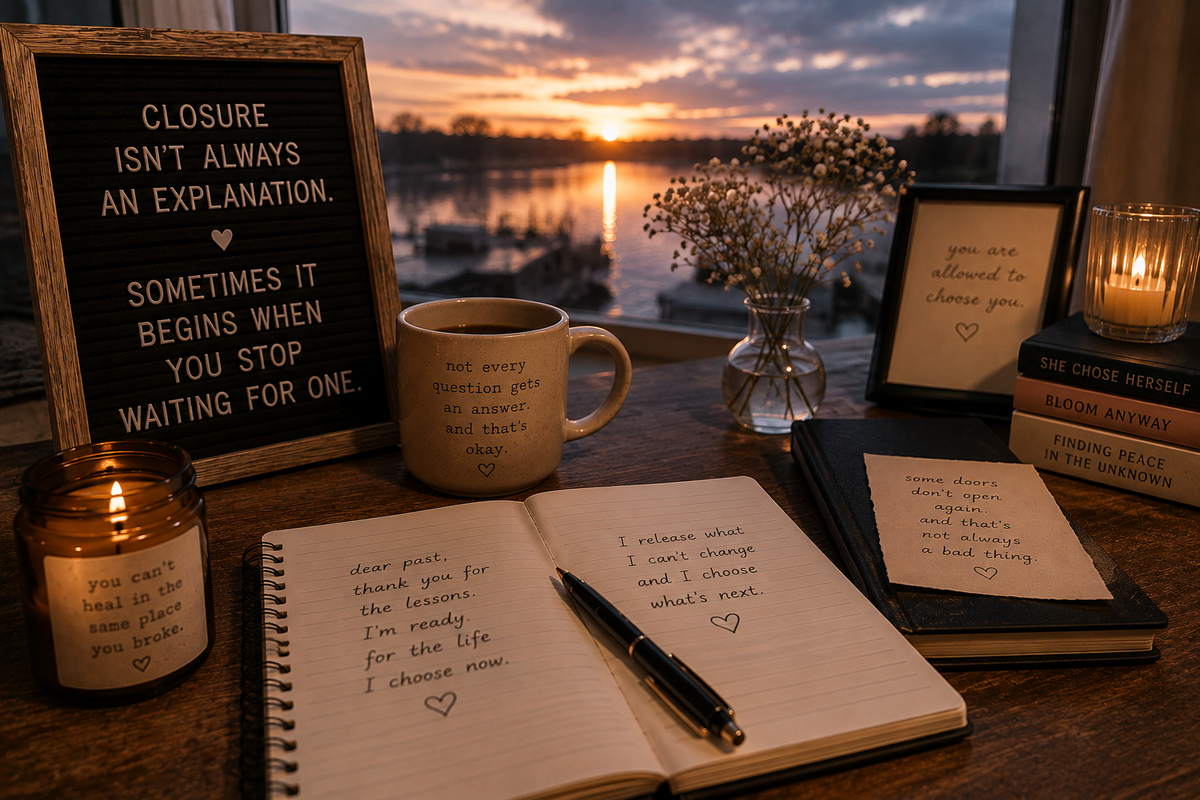 CLOSURE
ISN'T ALWAYS
AN EXPLANATION.
SOMETIMES IT
BEGINS WHEN
YOU STOP
WAITING FOR ONE.
not every
question gets
an answer.
and that's
okay.
you are
allowed to
choose you.
SHE CHOSE HERSELF
BLOOM ANYWAY
FINDING PEACE
IN THE UNKNOWN
you can't
heal in the
same place
you broke.
dear past,
thank you for
the lessons.
I'm ready.
for the life
I choose now.
I release what
I can't change
and I choose
what's next.
some doors
don't open
again.
and that's
not always
a bad thing.